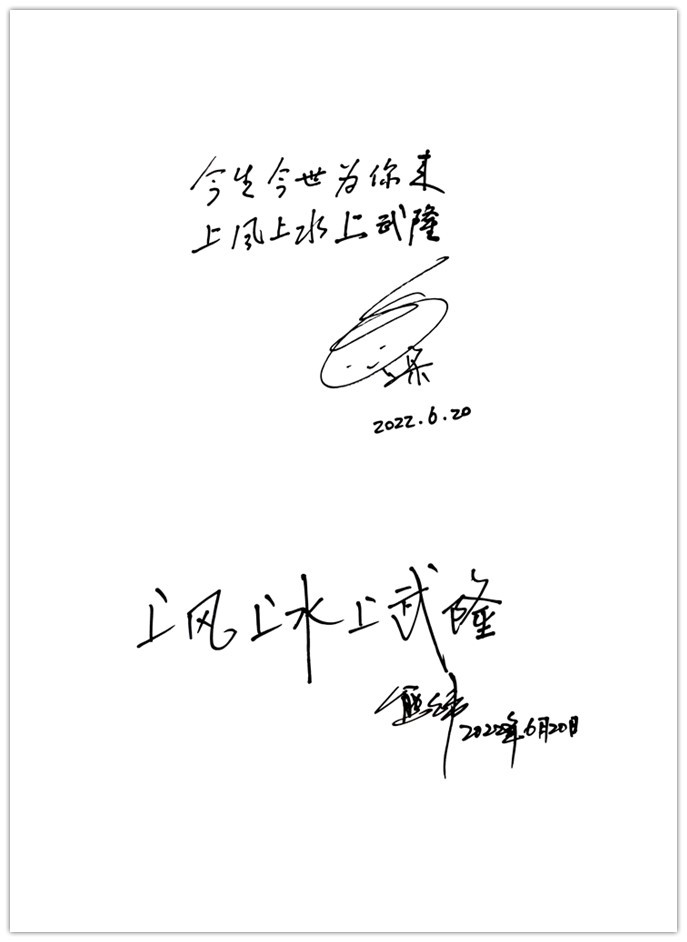 今生今世为你来
上风上水上武隆
朵
2022.6.20
上风上水上武隆
2022年6月20日